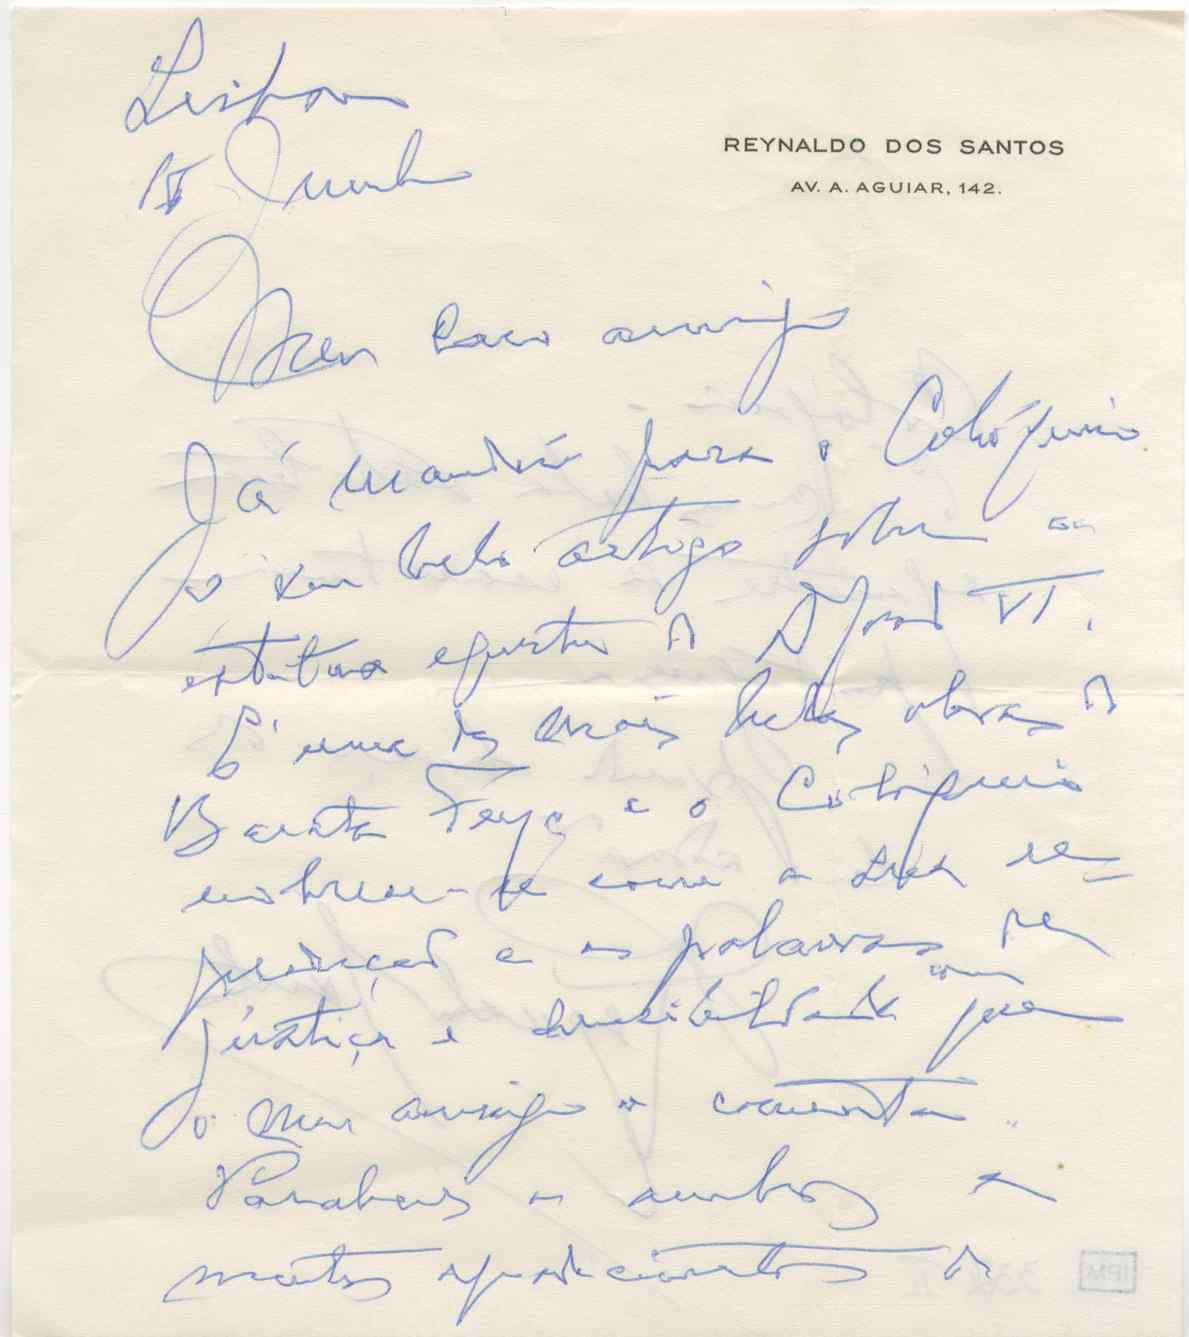 Lisboa
REYNALDO DOS SANTOS
Junho
AV. A. AGUIAR, 142.
Meu caro amigo
Já mandei para o Colóquio
o seu belo artigo sobre a
estátua equestre de D. João VI.
É uma das mais belas obras de
Barata Feyo e o Colóquio
enobrece-se com a sua re-
produção e as palavras de
justiça e sensibilidade com que
o meu amigo a comenta.
Parabens a ambos e
muitos agradecimentos do